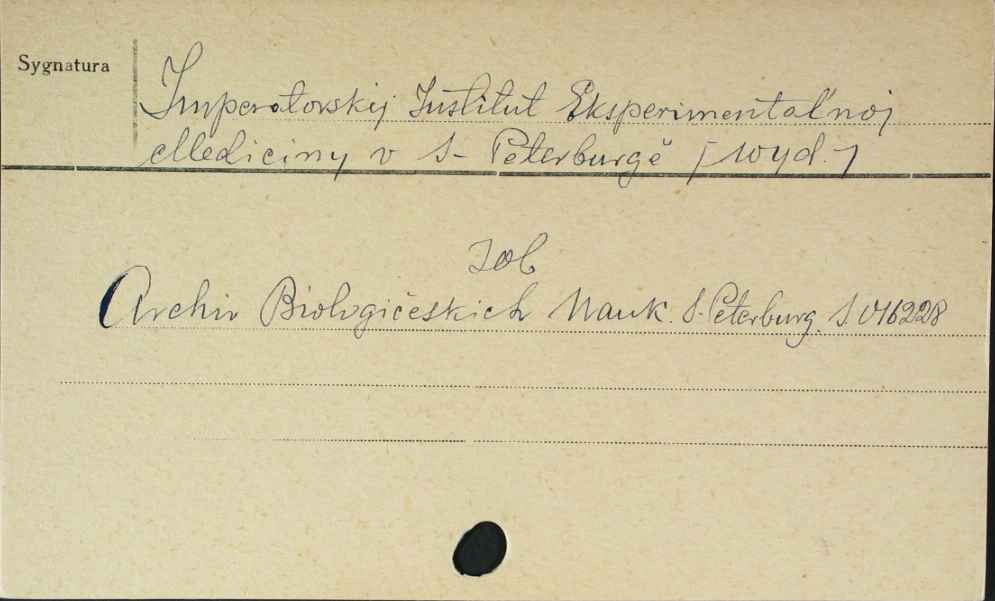 Sygnatura
Imperatorskij Institut Eksperimental'noj
Mediciny v S-Peterburgě [wyd.]
zob
Archiv Biologičeskich Nauk. S. Peterburg. S VI 6228